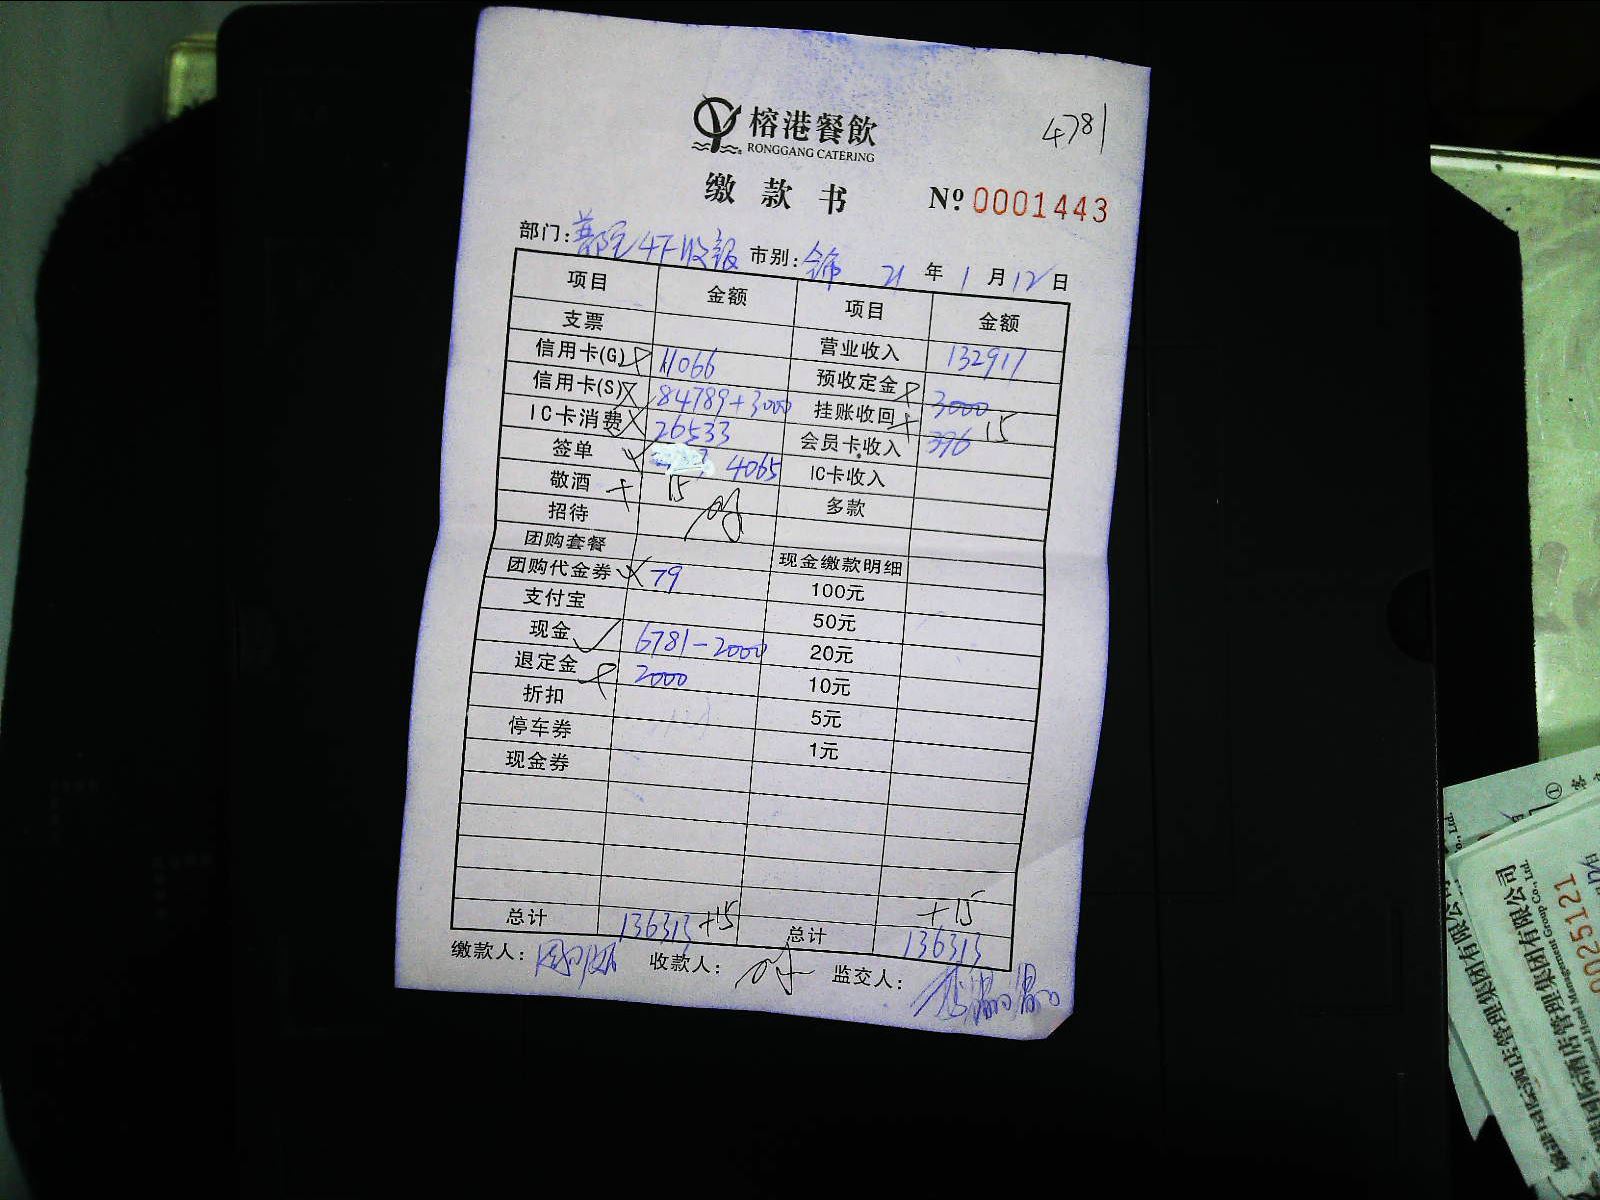 4781
榕港餐飲
RONGGANG CATERING
缴款书 № 0001443
部门: 4F收银 市别: 全市 21年1月12日
项目 金额 项目 金额
支票 营业收入 132917
信用卡(G) 11066 预收定金 3000
信用卡(S) 84789+3000 挂账收回 15
IC卡消费 26533 会员卡收入 396
签单 4065 IC卡收入
敬酒 15 多款
招待
团购套餐 现金缴款明细
团购代金券 79 100元
支付宝 50元
现金 6781-2000 20元
退定金 2000 10元
折扣 5元
停车券 1元
现金券
总计 136313+15 总计 +15 136313
缴款人: 收款人: 监交人:
酒店管理集团有限公司
Hotel Management Group Co., Ltd.
0025121